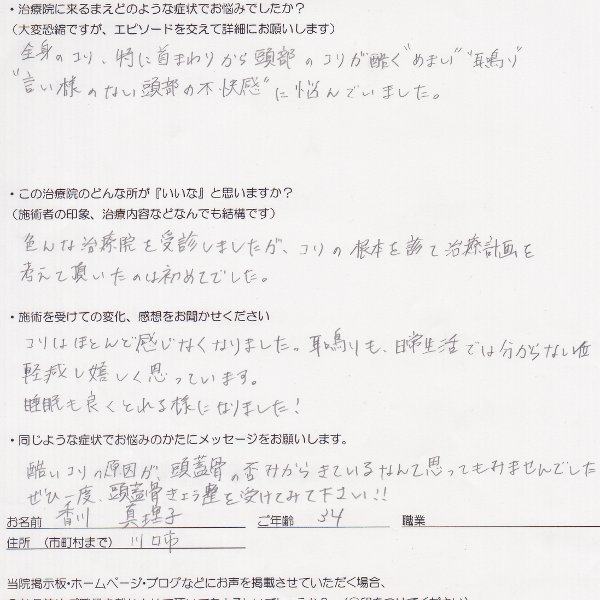 ・治療院に来るまえどのような症状でお悩みでしたか？
（大変恐縮ですが、エピソードを交えて詳細にお願いします）
全身のコリ、特に首まわりから頭部のコリが酷く"めまい""耳鳴り"
"言い様のない頭部の不快感"に悩んでいました。
・この治療院のどんな所が『いいな』と思いますか？
（施術者の印象、治療内容などなんでも結構です）
色んな治療院を受診しましたが、コリの根本を診て治療計画を
考えて頂いたのは初めてでした。
・施術を受けての変化、感想をお聞かせください
コリはほとんど感じなくなりました。耳鳴りも、日常生活では分からない位
軽減し嬉しく思っています。
睡眠も良くとれる様になりました！
・同じような症状でお悩みのかたにメッセージをお願いします。
酷いコリの原因が、頭蓋骨の歪みからきているなんて思ってもみませんでした
ぜひ一度、頭蓋骨きょう整を受けてみて下さい!!
お名前 香川 真理子 ご年齢 34 職業
住所 （市町村まで） 川口市
当院掲示板・ホームページ・ブログなどにお声を掲載させていただく場合、